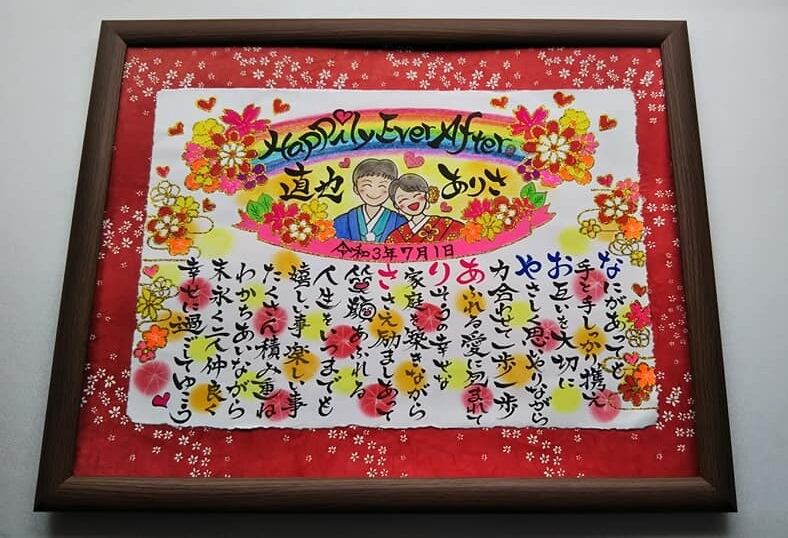 Happily Ever After
直也
ありさ
令和3年7月1日
なにがあっても
手と手しっかり携え
お互いを大切に
やさしく思いやりながら
力合わせて一歩一歩
あふれる愛に包まれて
りそうの幸せな
家庭を築きながら
ささえ励ましあって
笑顔あふれる
人生をいつまでも
嬉しい事楽しい事
たくさん積み重ね
わかちあいながら
末永く二人仲良く
幸せに過ごしてゆこう